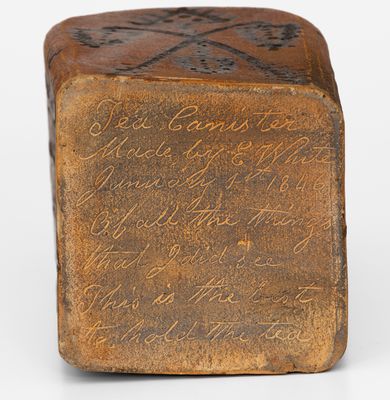 Tea Canister
Made by E White
January 1st 1846
Of all the things
that I did see
This is the best
to hold the tea